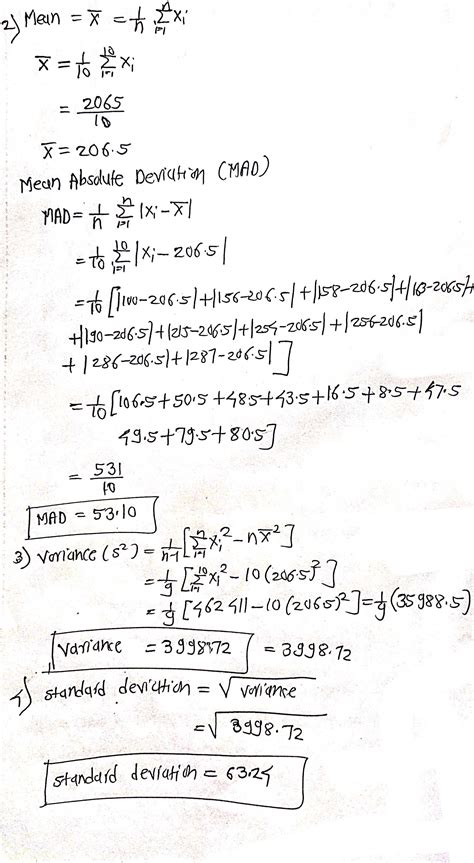 2) Mean = x̄ = 1/n Σ_{i=1}^{n} xi
x̄ = 1/10 Σ_{i=1}^{10} xi
= 2065/10
x̄ = 206.5
Mean Absolute Deviation (MAD)
MAD = 1/n Σ_{i=1}^{n} |xi - x̄|
= 1/10 Σ_{i=1}^{10} |xi - 206.5|
= 1/10 [|100-206.5|+|156-206.5|+|158-206.5|+|163-206.5|+
+|190-206.5|+|215-206.5|+|254-206.5|+|256-206.5|
+|286-206.5|+|287-206.5|]
= 1/10 [106.5+50.5+48.5+43.5+16.5+8.5+47.5
49.5+79.5+80.5]
= 531/10
MAD = 53.10
3) Variance (s²) = 1/n-1 [Σ_{i=1}^{n} xi² - nx̄²]
= 1/9 [Σ_{i=1}^{10} xi² - 10(206.5)²]
= 1/9 [462411-10(206.5)²] = 1/9 (35988.5)
Variance = 3998.72 = 3998.72
4) standard deviation = √variance
= √3998.72
standard deviation = 63.24